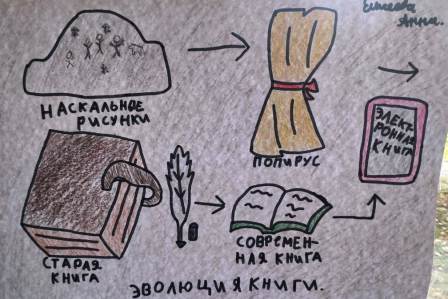 Анна.
НАСКАЛЬНОЕ
РИСУНКИ
ПОПИРУС
ЭЛЕКТ-
РОННАЯ
КНИГА
СТАРАЯ
КНИГА
СОВРЕМЕН-
НАЯ КНИГА
ЭВОЛЮЦИЯ КНИГИ.